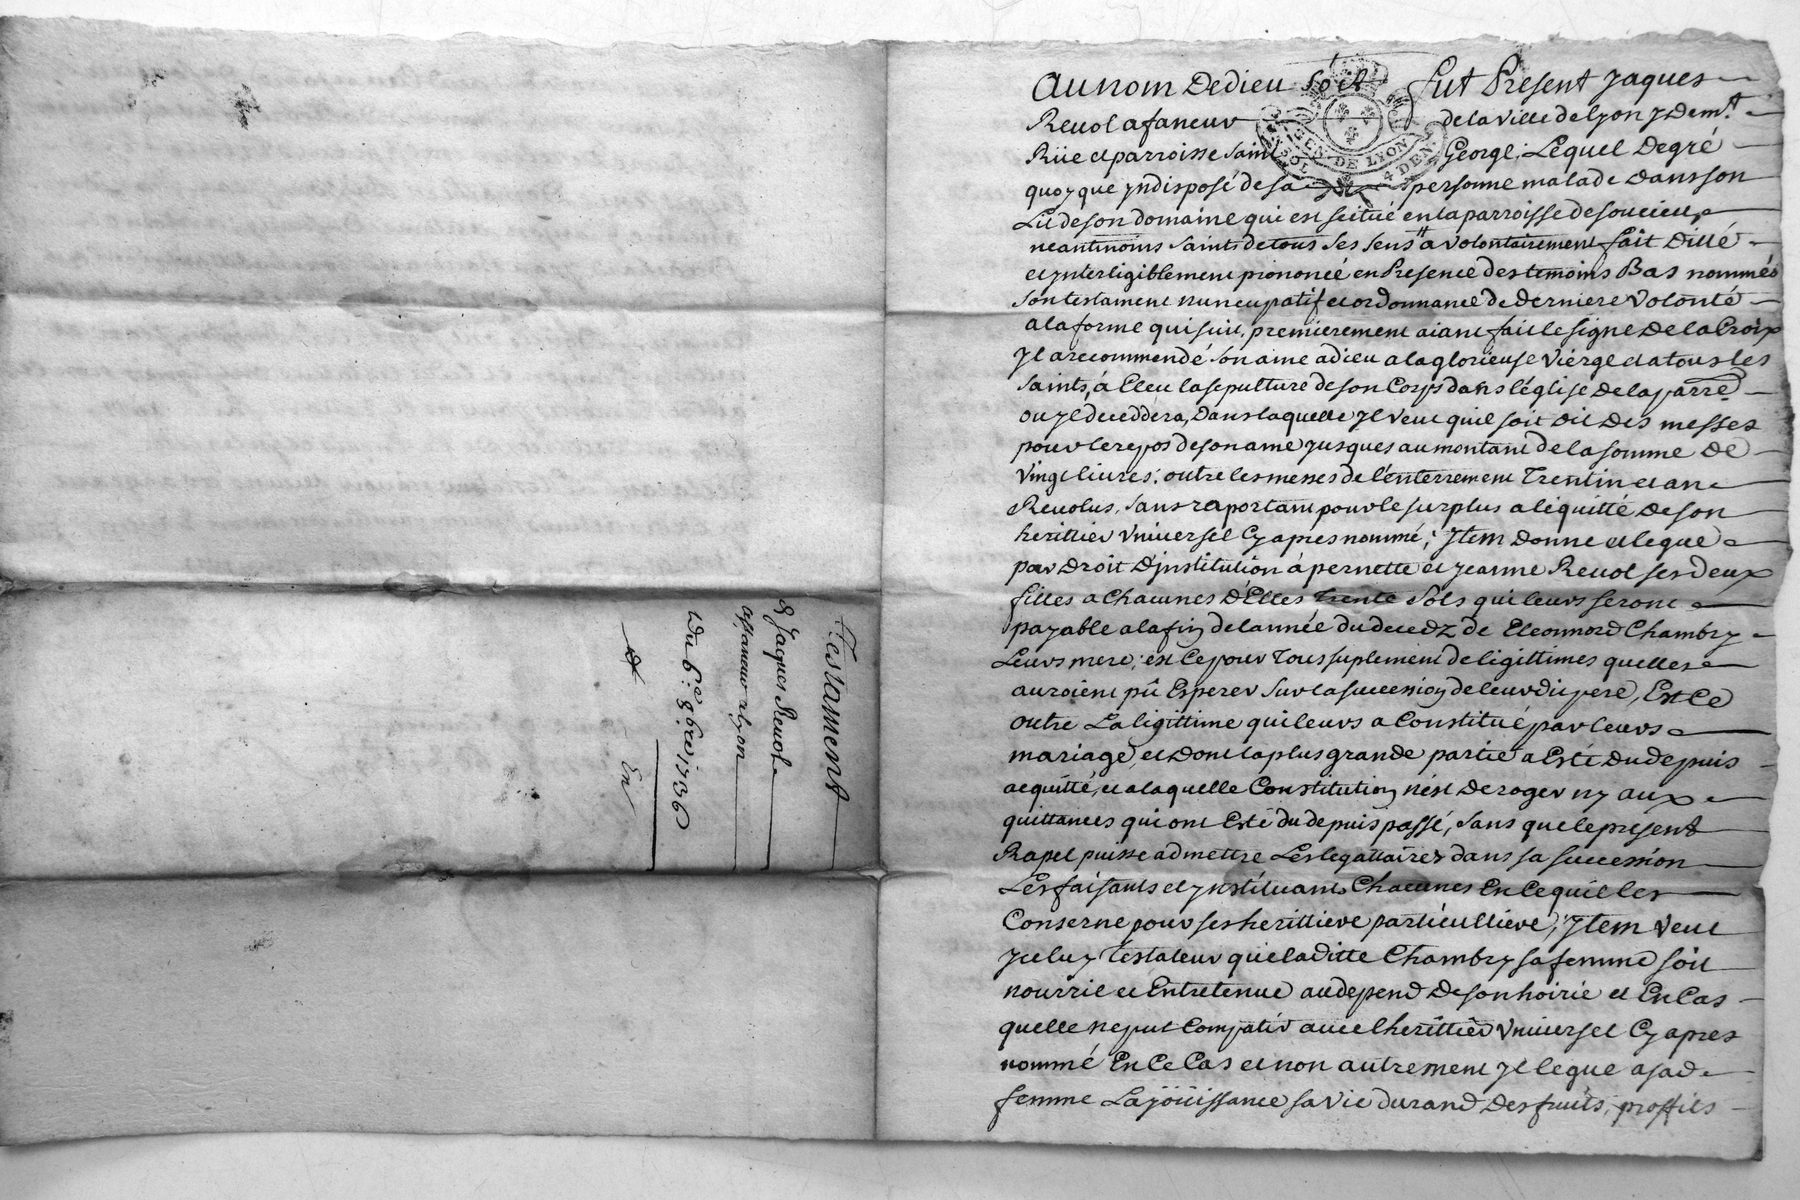 Testament
de Jaques Revol
affaneur a lyon
Du 6.e 8bre 1736
En
Au nom De dieu soit fut Present Jaques
Revol afaneur de la ville de lyon y dem.t
Rüe et parroisse Saint George, Lequel De gré
quoy que yndisposé de sa personne malade dans son
Lit de son domaine qui est scitué en la parroisse de soucieu,
neantmoins saints de tous ses sens a volontairement fait Ditté
et ynteligiblement prononcé en Presence des temoins Bas nommés
son testament nuncupatif et ordonnance de derniere volonté
a la forme qui suit, premierement aiant fait le signe de la Croix
Jl a recommendé son ame a dieu a la glorieuse vierge et a tous les
saints, á Eleu la sepulture de son Corps dans l'église de la parre
ou jl deceddera, Dans laquelle jl veut quil soit dit Des messes
pour le repos de son ame jusques au montant de la somme de
vingt livres, outre les messes de l'enterrement Trentin et an
Revolus, sans raportant pour le surplus a léquitté de son
herittier Vniversel Cy apres nommé; Jtem Donne et legue
par Droit D'jnstitution à pernette et jeanne Revol ses deux
filles a Chacunes D'Elles trente Sols qui leurs seront
payable a la fin de lannée du decedz de Eleonnord Chambry
Leurs mere, est Ce pour Tous suplement de ligittimes quelles
auroient pû Esperer sur la succession de leur dit pere, Est Ce
outre La ligittime qui leurs a Constitué par leurs
mariage, et Dont la plus grande partie a Esté du depuis
acquitté, et a laquelle Constitution n'est Deroger ny aux
quittances qui ont Esté du depuis passé, sans que le present
Rapel puisse admettre Les legattaires dans sa succession
Les faisants et ynstituant Chacunes En Ce quil les
Conserne pour ses herittiere particulliere, Jtem veut
Jceluy Testateur que laditte Chambry sa femme soit
nourrie et Entretenue au depend De son hoirie et En Cas
quelle ne put Compatir avec lherittier Vniversel Cy apres
nommé En Ce Cas et non autrement jl legue a sad
femme La joüissance sa vie durand Des fruits, proffits